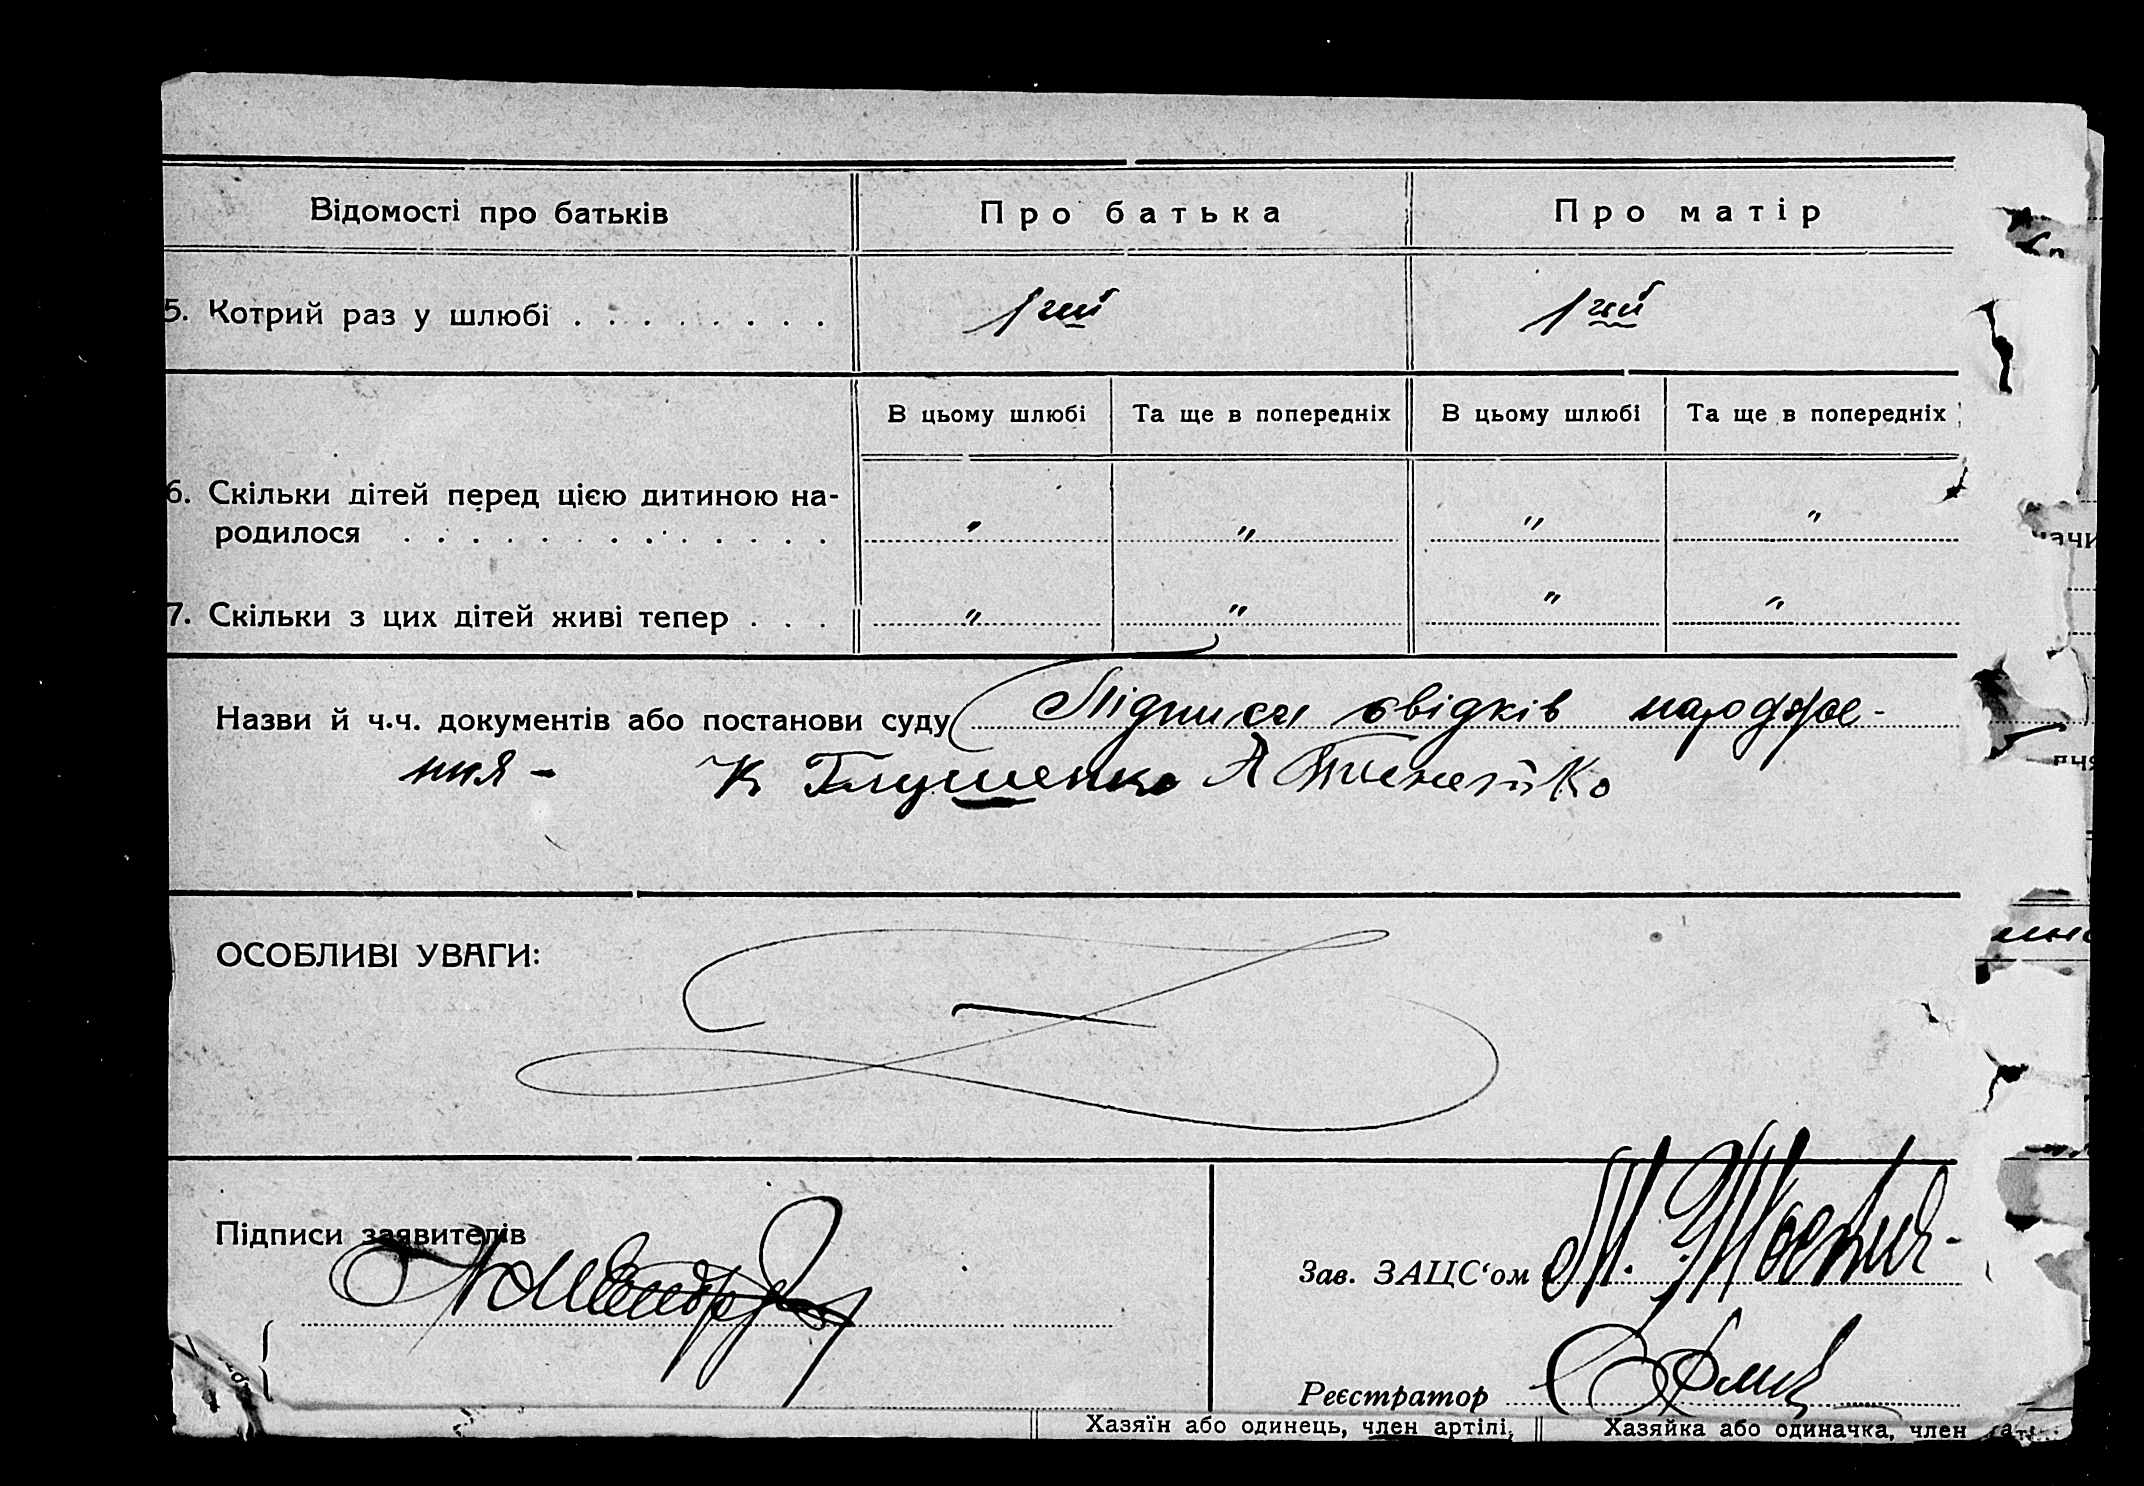 Відомості про батьків Про батька Про матір
5. Котрий раз у шлюбі . . . . . . . . 1ший 1ший
В цьому шлюбі Та ще в попередніх В цьому шлюбі Та ще в попередніх
6. Скільки дітей перед цією дитиною на-
родилося . . . . . . . . . . . . . " " " "
7. Скільки з цих дітей живі тепер . . . " " " "
Назви й ч.ч. документів або постанови суду Підписи свідків народже-
ння - К Глушенко А
ОСОБЛИВІ УВАГИ:
Підписи заявителів
Зав. ЗАЦС‘ом М.
Реєстратор
Хазяїн або одинець, член артілі, Хазяйка або одиначка, член